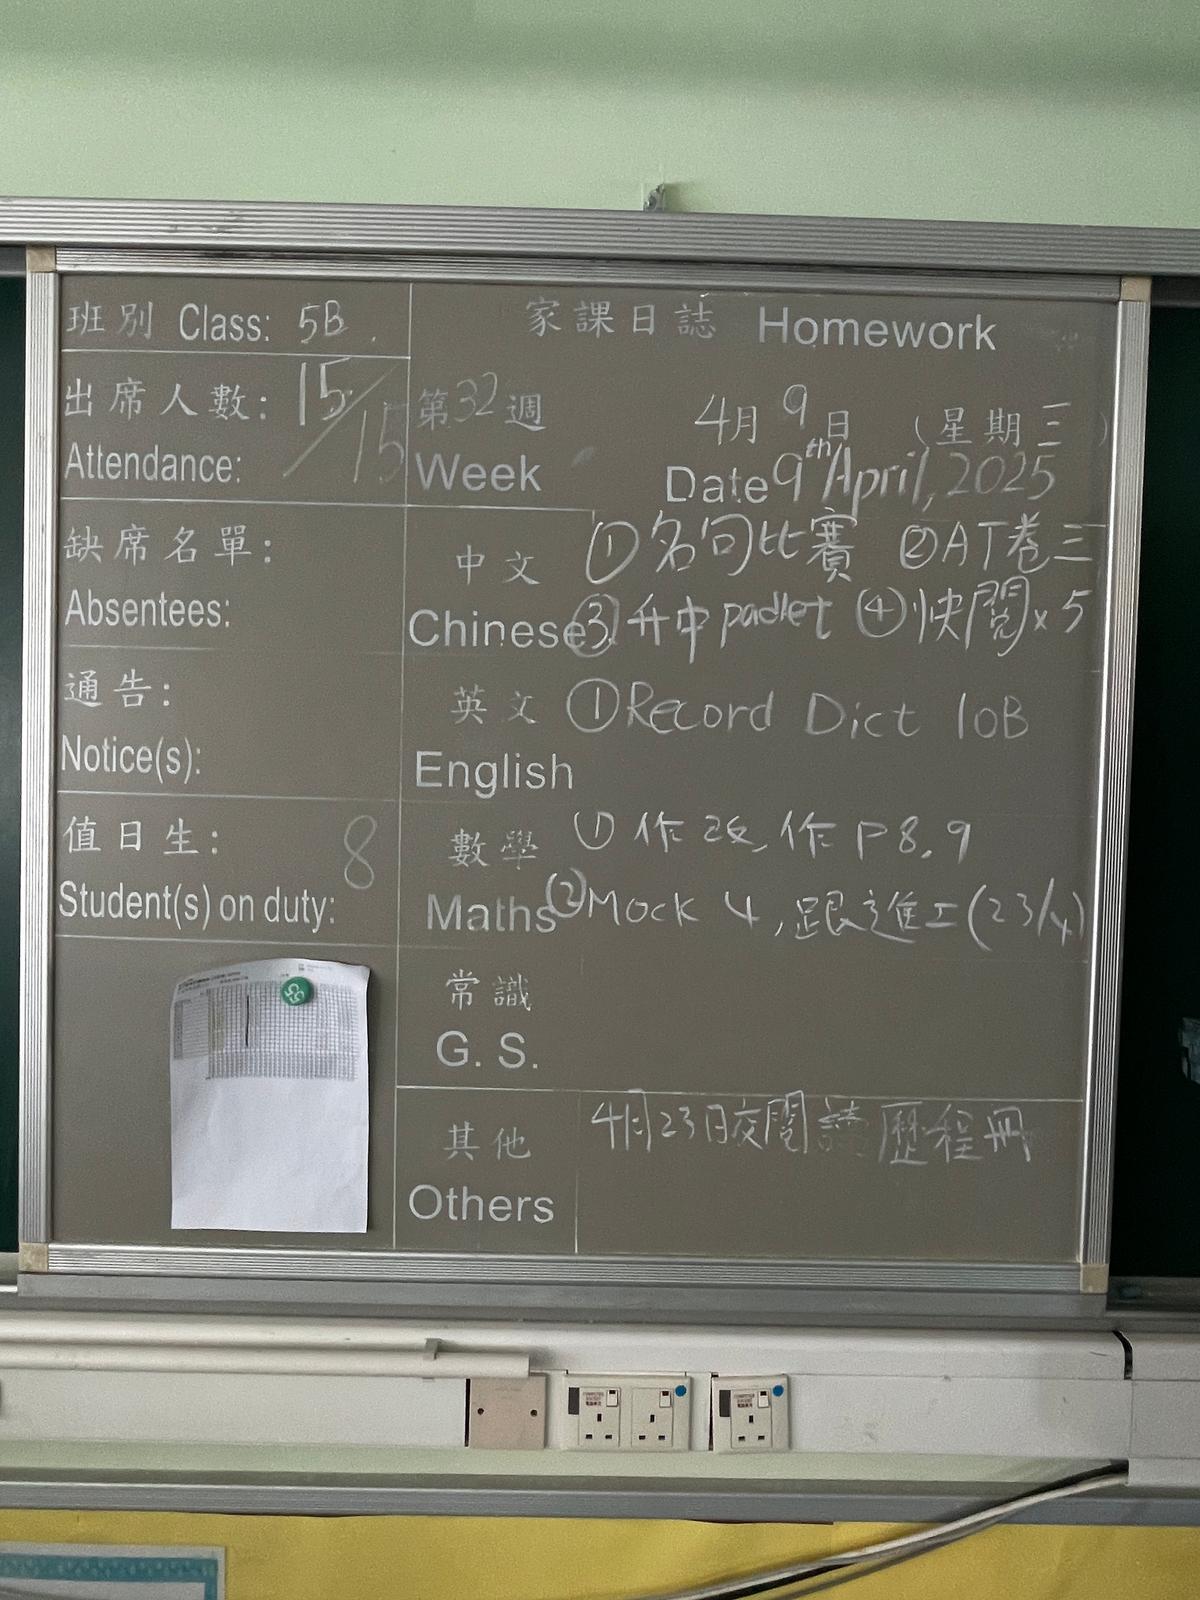 班別 Class: 5B.
家課日誌 Homework
出席人數: 15/15
Attendance:
第32週
Week
4月9日 (星期三)
Date 9th April, 2025
缺席名單:
Absentees:
中文 ①名句比賽 ②AT卷三
Chinese ③升中padlet ④快閱x5
通告:
Notice(s):
英文 ①Record Dict 10B
English
值日生: 8
Student(s) on duty:
數學 ①作改, 作P8,9
Maths ②Mock 4,跟進工(23/4)
常識
G. S.
其他 4月23日交閱讀歷程冊
Others